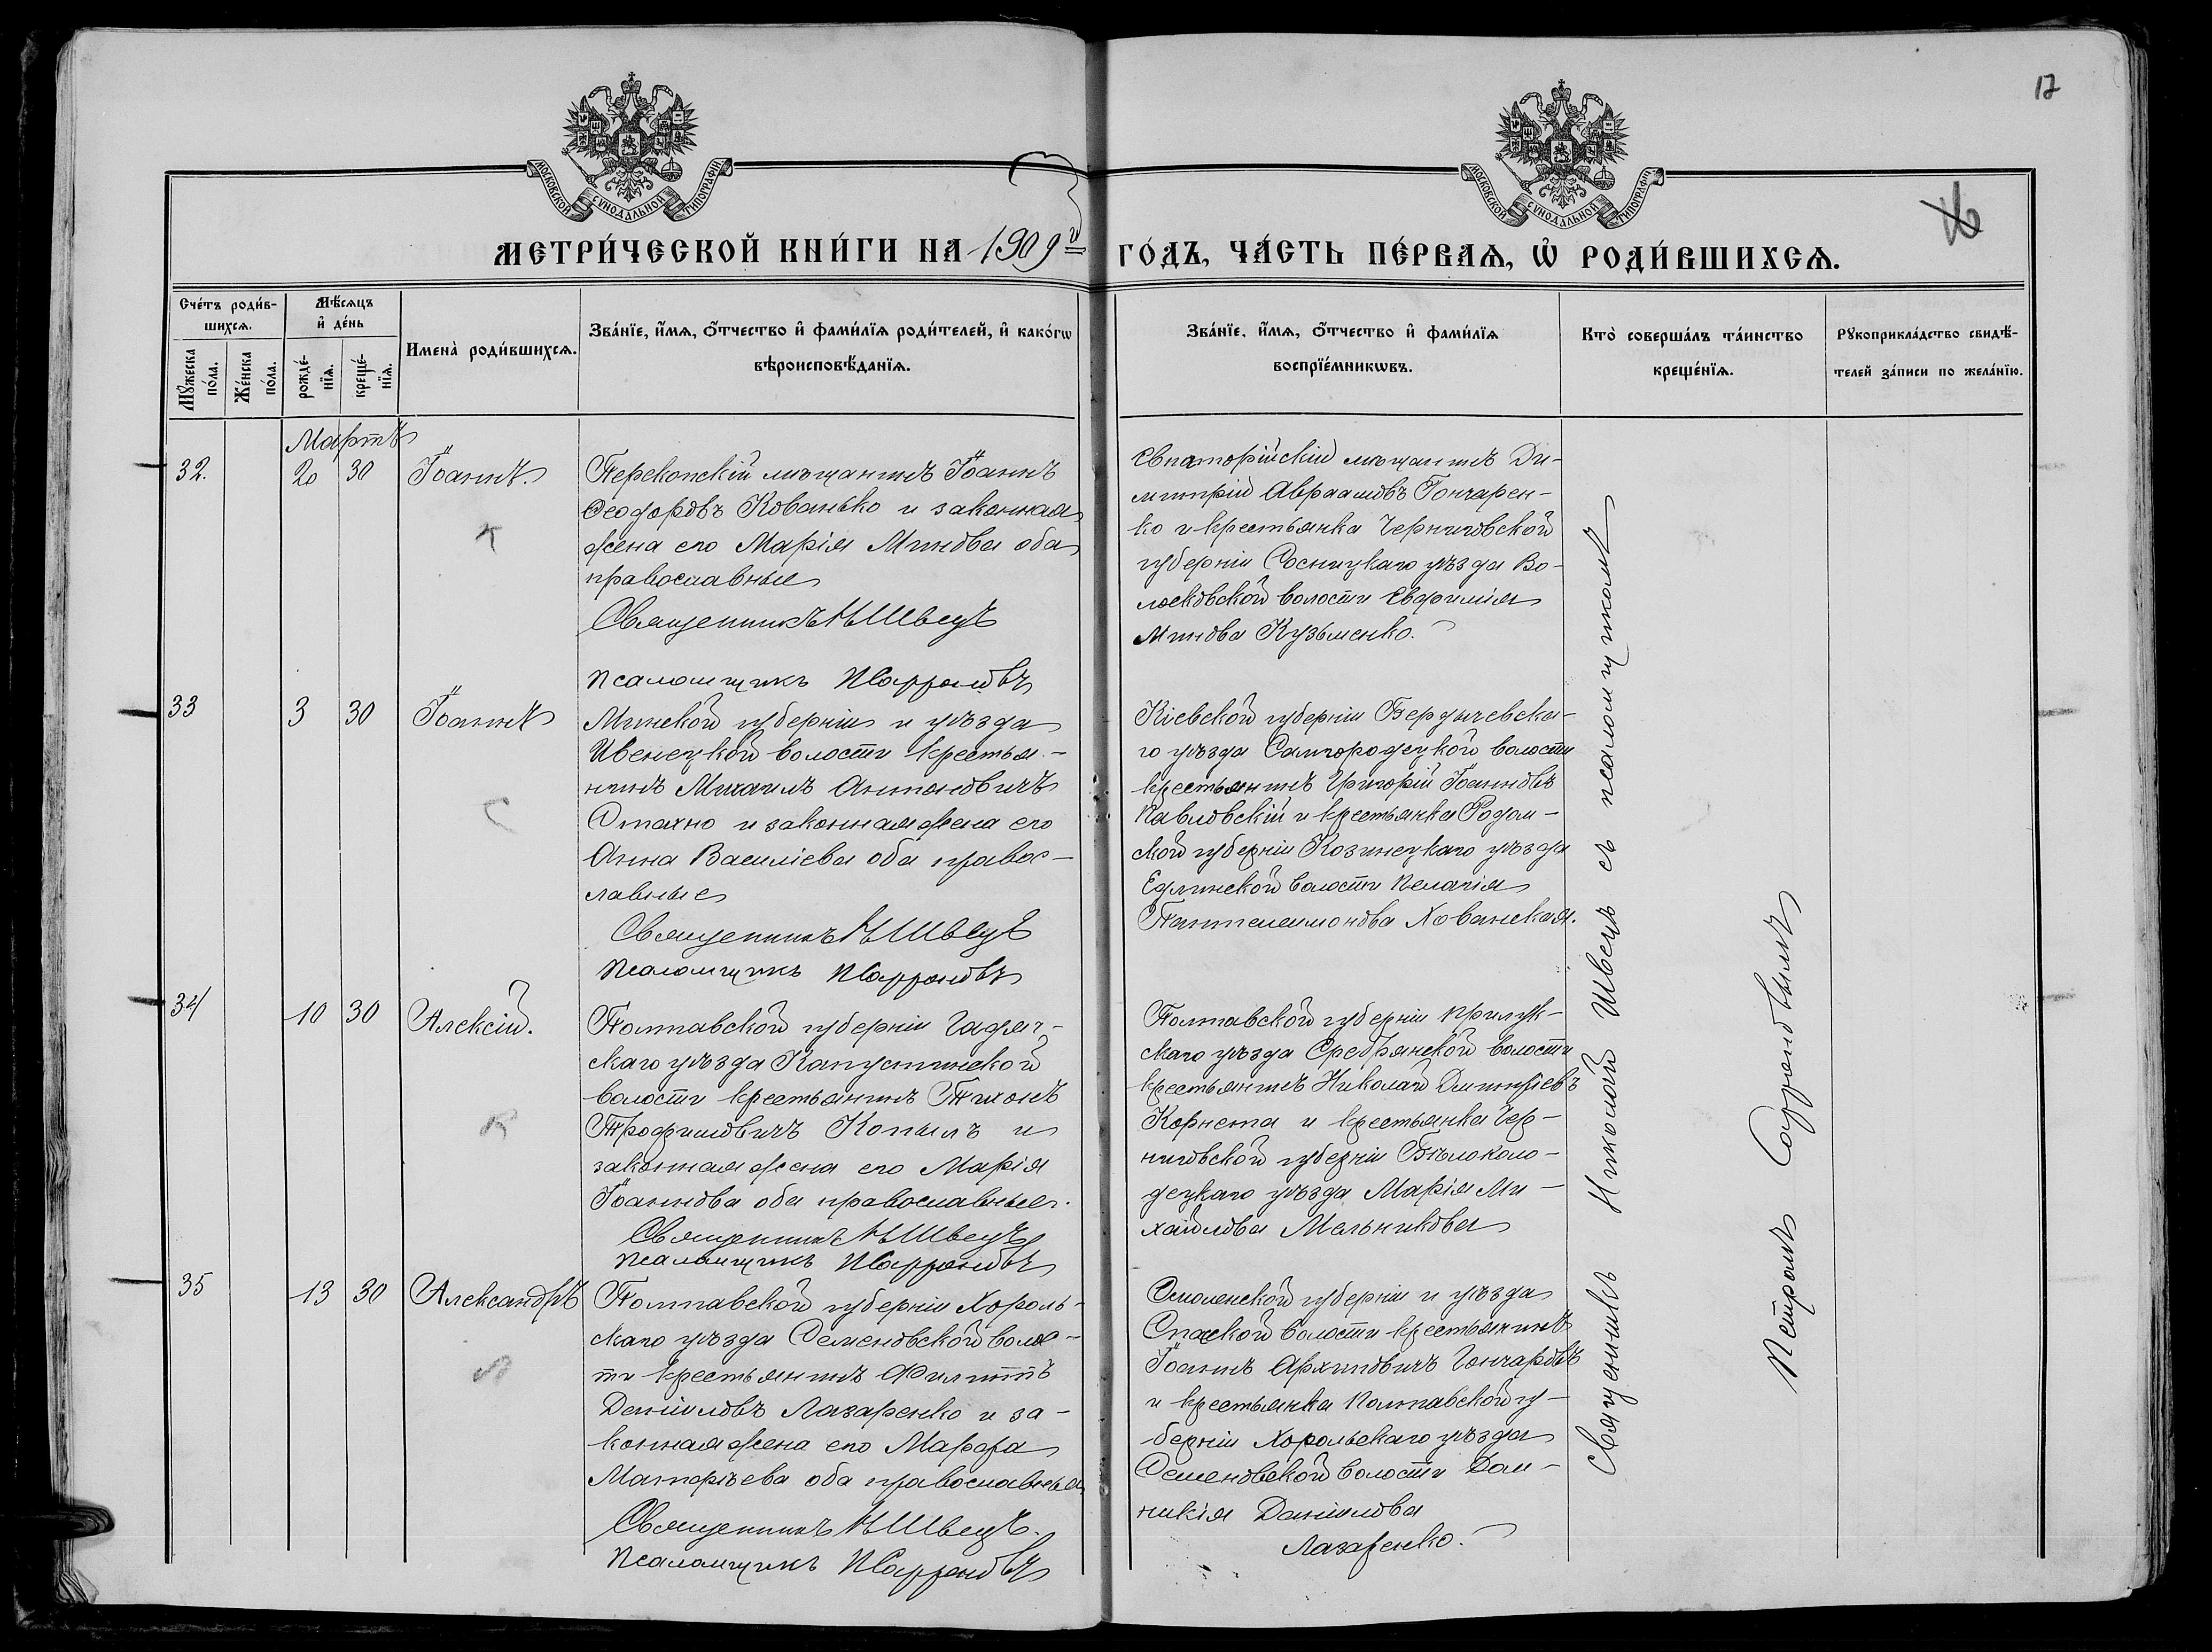 17
16
МОСКОВСКОЙ СѴНОДАЛЬНОЙ ТИПОГРАФІИ
МОСКОВСКОЙ СѴНОДАЛЬНОЙ ТИПОГРАФІИ
МЕТРИ́ЧЕСКОЙ КНИ́ГИ НА 1909й ГО́ДЪ, ЧА́СТЬ ПЕ́РВАѦ, Ѡ҆ РОДИ́ВШИХСѦ.
Сче́тъ роди́в-
шихсѧ.
Мꙋ́жеска по́ла.
Же́нска по́ла.
Мѣ́сѧцъ
и҆ де́нь
рожде́-
нїѧ.
креще́-
нїѧ.
Имена̀ роди́вшихсѧ.
Зва́нїе, и҆́мѧ, ѻ҆́тчество и҆ фами́лїѧ роди́телей, и҆ како́гѡ
вѣроисповѣ́данїѧ.
Зва́нїе, и҆́мѧ, ѻ҆́тчество и҆ фами́лїѧ
воспрїе́мникѡвъ.
Кто̀ соверша́лъ та́инство
креще́нїѧ.
Рꙋкоприкла́дство свидѣ́-
телей за́писи по жела́нїю.
Мартъ
32. 20 30 Іоаннъ.
Перекопскій мѣщанинъ Іоаннъ
Ѳеодоровъ Кованько и законная
жена его Марія Минова оба
православные
Священникъ Н Швецъ
Псаломщикъ П Софроновъ
Евпаторійскій мѣщанинъ Ди-
митрій Авраамовъ Гончарен-
ко и крестьянка Черниговской
губерніи Сосницкаго уѣзда Во-
лосковской волости Евфимія
Минова Кузьменко.
33 3 30 Іоаннъ
Минской губерніи и уѣзда
Ивенецкой волости крестья-
нинъ Михаилъ Антоновичъ
Стахно и законная жена его
Анна Василіева оба правос-
лавные
Священникъ Н Швецъ
Псаломщикъ П Софроновъ
Кіевской губерніи Бердичевска-
го уѣзда Самгородецкой волости
крестьянинъ Григорій Іоанновъ
Павловскій и крестьянка Радом-
ской губерніи Козинецкаго уѣзда
Едлинской волости Пелагія
Пантелеимонова Хованская.
34 10 30 Алексій.
Полтавской губерніи Гадяч-
скаго уѣзда Капустинской
волости крестьянинъ Тихонъ
Трофимовичъ Копылъ и
законная жена его Марія
Іоаннова оба православные.
Священникъ Н Швецъ
Псаломщикъ П Софроновъ
Полтавской губерніи Прилук-
скаго уѣзда Сребрянской волости
крестьянинъ Николай Димитріевъ
Корнета и крестьянка Чер-
ниговской губерніи Бѣлоколо-
децкаго уѣзда Марія Ми-
хайлова Мельникова
35 13 30 Александръ
Полтавской губерніи Хороль-
скаго уѣзда Семеновской волос-
ти крестьянинъ Филиппъ
Даніиловъ Лазаренко и за-
конная жена его Марфа
Матфѣева оба православные
Священникъ Н Швецъ.
Псаломщикъ П Софроновъ
Смоленской губерніи и уѣзда
Спаской волости крестьянинъ
Іоаннъ Архиповичъ Гончаровъ
и крестьянка Полтавской гу-
берніи Хорольскаго уѣзда
Семеновской волости Дом-
никія Даніилова
Лазаренко.
Священникъ Николай Швецъ съ псаломщикомъ
Петромъ Софроновымъ